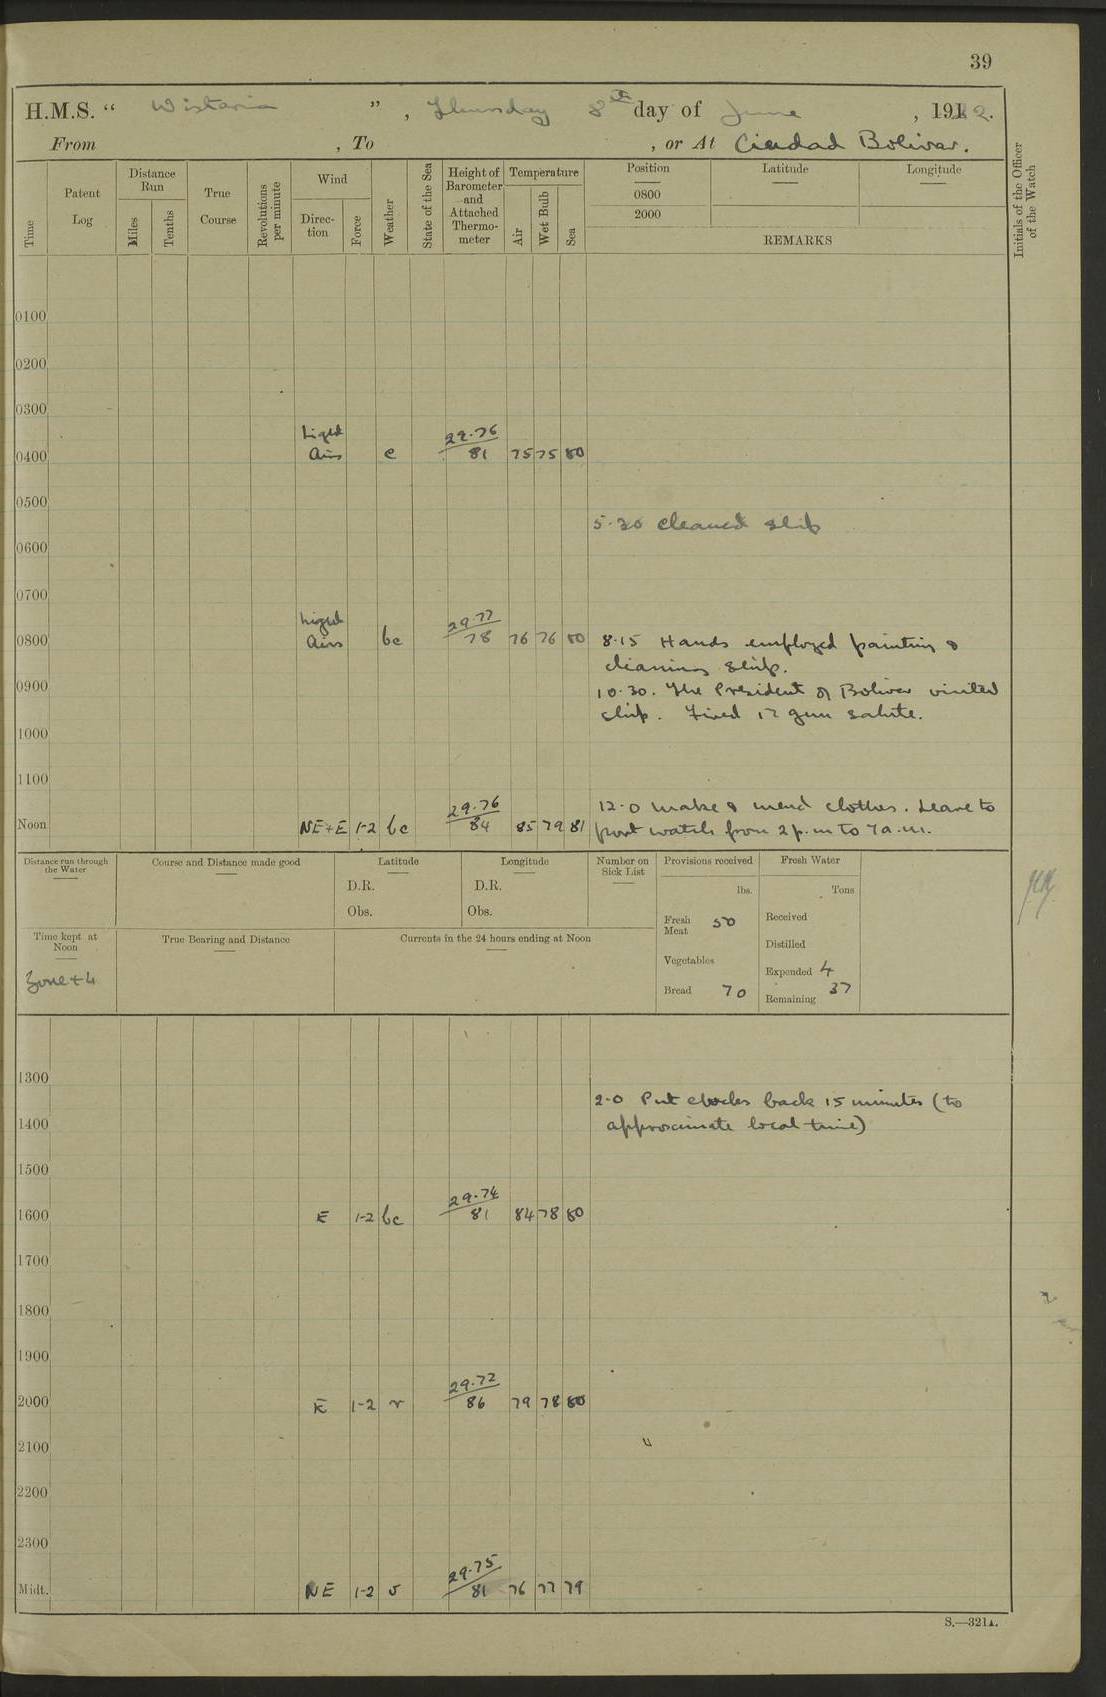 39
H.M.S. " Wistaria ", Thursday 8th day of June, 1922.
From , To , or At Ciudad Bolivar.
Time
Patent Log
Distance Run
Miles
Tenths
True Course
Revolutions per minute
Wind
Direc-tion
Force
Weather
State of the Sea
Height of Barometer and Attached Thermo-meter
Temperature
Air
Wet Bulb
Sea
Position
0800
2000
Latitude
Longitude
REMARKS
Initials of the Officer of the Watch
0100
0200
0300
Light
29.76
0400 Airs c 81 75 75 80
0500
5.30 Cleaned ship
0600
0700
Light
29.77
0800 Airs bc 78 76 76 80 8.15 Hands employed painting &
cleaning ship.
0900 10.30. The President of Bolivar visited
ship. Fired 17 gun salute.
1000
1100
29.76 12.0 make & mend clothes. Leave to
Noon NE+E 1-2 bc 84 85 79 81 port watch from 2 p.m to 7 a.m.
Distance run through the Water
Course and Distance made good
Latitude
D.R.
Obs.
Longitude
D.R.
Obs.
Number on Sick List
Provisions received
lbs.
Fresh Meat 50
Vegetables
Bread 70
Fresh Water
Tons
Received
Distilled
Expended 4
Remaining 37
Time kept at Noon
Zone + 4
True Bearing and Distance
Currents in the 24 hours ending at Noon
1300
2.0 Put clocks back 15 minutes (to
1400 approximate local time)
1500
29.74
1600 E 1-2 bc 81 84 78 80
1700
1800
1900
29.72
2000 E 1-2 r 86 79 78 80
2100
2200
2300
29.75
Midt. NE 1-2 81 76 77 79
S.—321A.